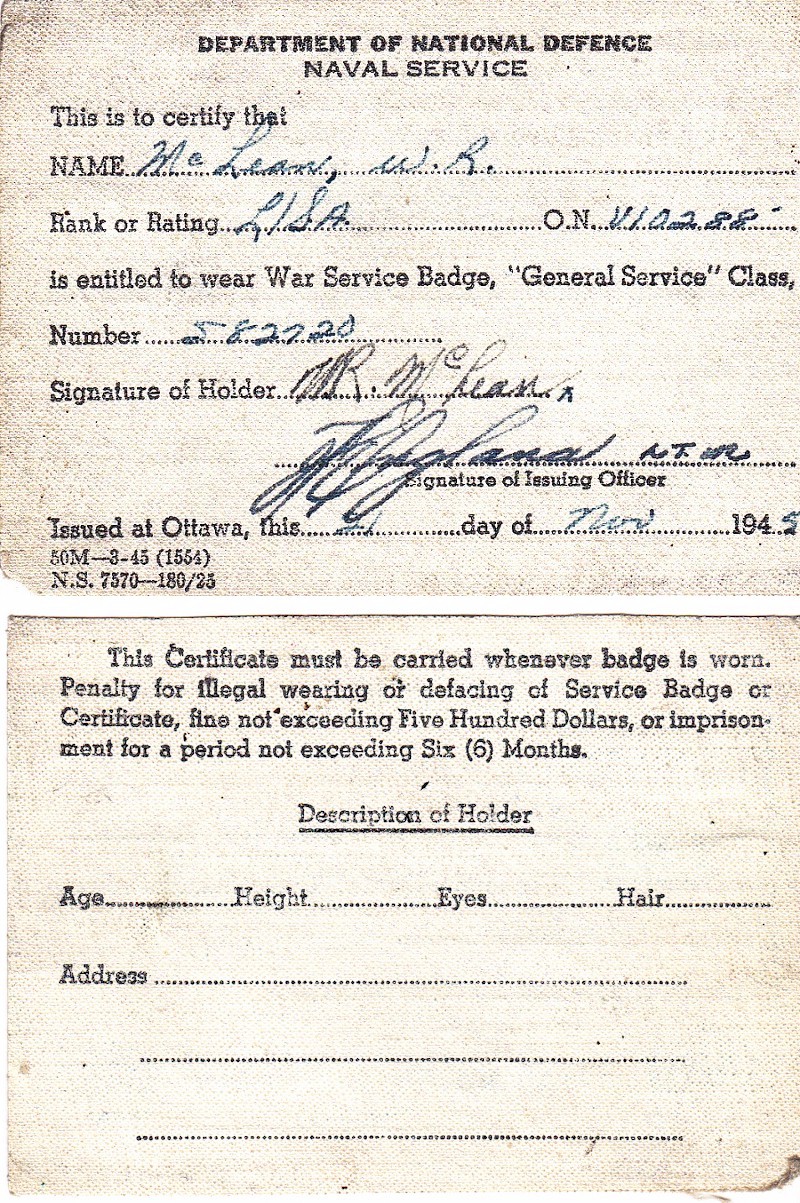 DEPARTMENT OF NATIONAL DEFENCE
NAVAL SERVICE
This is to certify that
NAME Mc Lean, W. R.
Rank or Rating L/SA O.N. V10288
is entitled to wear War Service Badge, "General Service" Class,
Number 582720
Signature of Holder W.R. McLean
Signature of Issuing Officer
Issued at Ottawa, this 21 day of Nov 1945
50M—3-45 (1554)
N.S. 7570—180/25
This Certificate must be carried whenever badge is worn.
Penalty for illegal wearing or defacing of Service Badge or
Certificate, fine not exceeding Five Hundred Dollars, or imprison-
ment for a period not exceeding Six (6) Months.
Description of Holder
Age Height Eyes Hair
Address